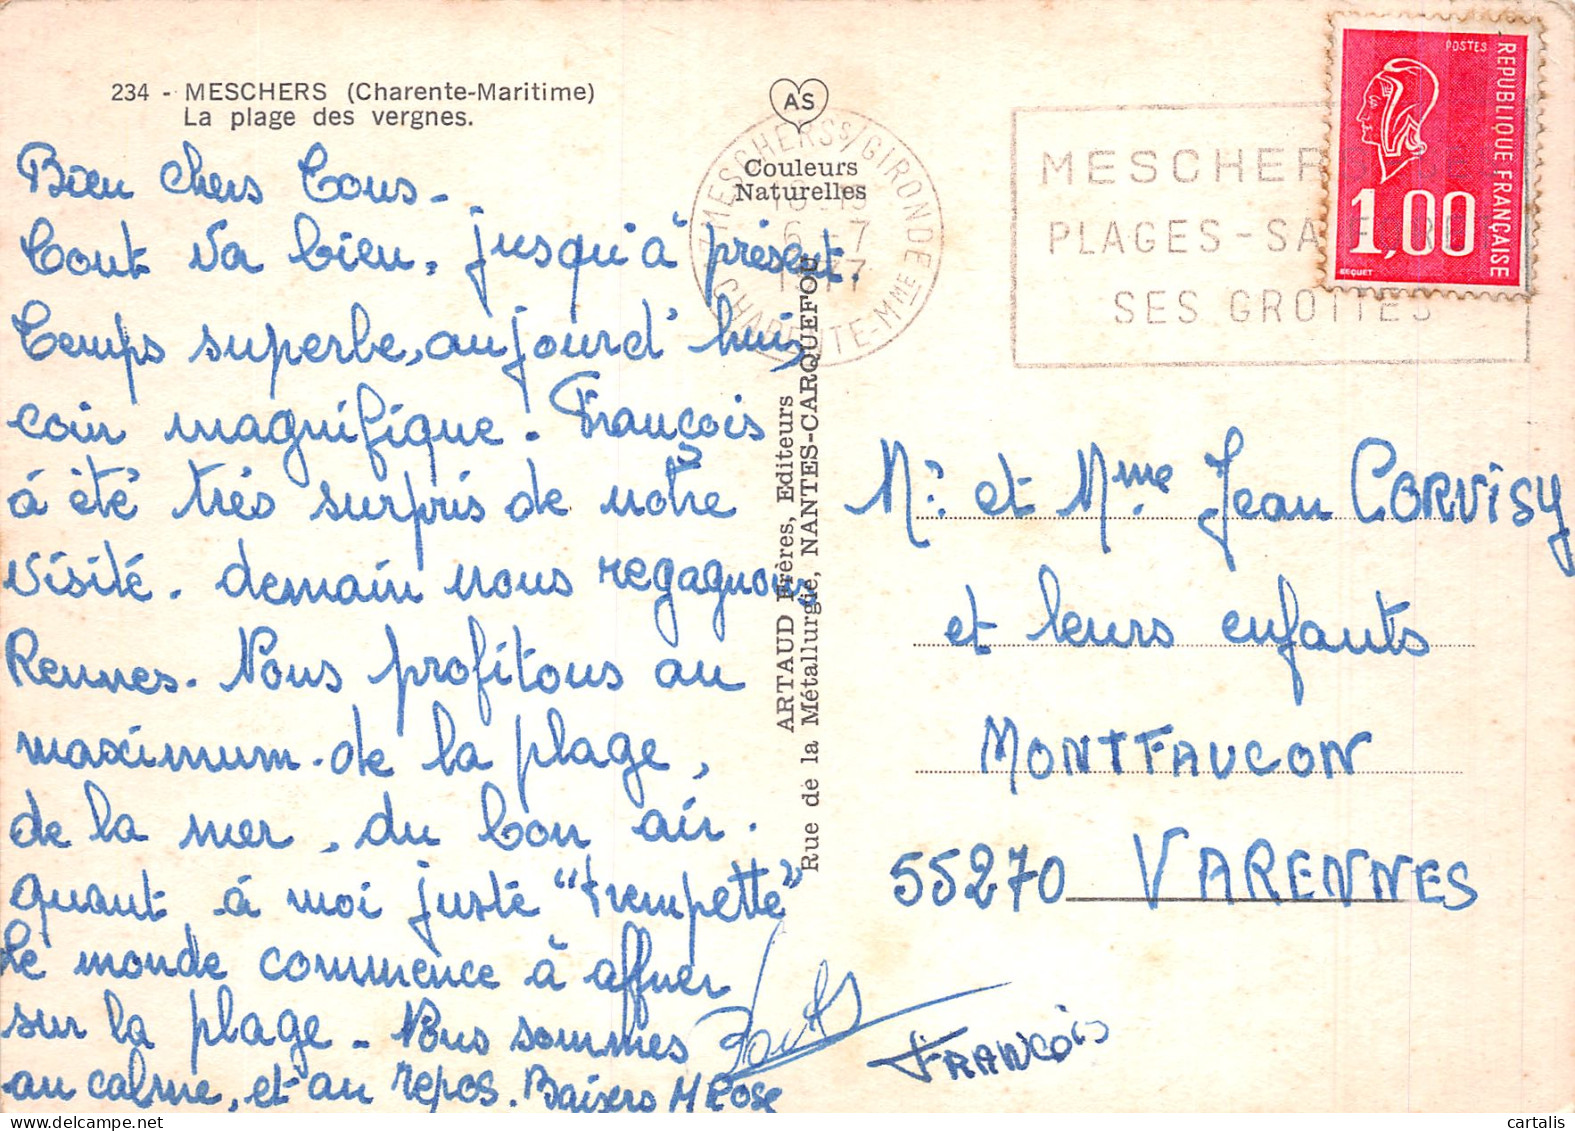 234 - MESCHERS (Charente-Maritime)
La plage des vergnes.
Bien chers Tous-
Tout va bien, jusqu'à présent.
Temps superbe, aujourd'hui
coin magnifique - François
á été très surpris de notre
visité. demain nous regagnons
Rennes. Nous profitons au
maximum. de la plage,
de la mer, du bon air.
quant á moi juste "trempette"
Le monde commence à affluer
sur la plage - Nous sommes
au calme, et au repos. Baisers M Rose
FRANCOIS
AS
Couleurs
Naturelles
ARTAUD Frères, Editeurs
Rue de la Métallurgie, NANTES-CARQUEFOU
MESCHERS S/GIRONDE
6 -7
1977
CHARENTE-MME
MESCHERS
PLAGES -
SES GROTTES
POSTES
REPUBLIQUE FRANÇAISE
1,00
BEQUET
Mr et Mme Jean CORVISY
et leurs enfants
MONTFAUCON
55270 VARENNES
cartalis